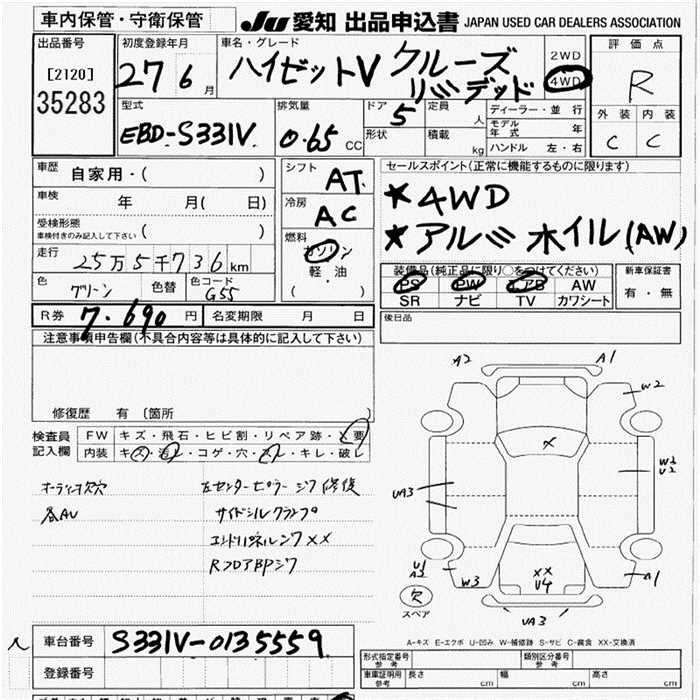 車内保管・守衛保管
JU 愛知 出品申込書 JAPAN USED CAR DEALERS ASSOCIATION
出品番号
[2120]
35283
初度登録年月
27 6 月
車名・グレード
ハイゼットV クルーズ
リミテッド
2WD
4WD
評価点
R
外装 内装
C C
型式
EBD-S331V
排気量
0.65 CC
ドア 5
形状
定員 人
積載 kg
ディーラー・並行
モデル年式 年
ハンドル 左・右
車歴 自家用・( )
車検 年 月( 日)
受検形態
車検付きのみ記入して下さい ( )
走行
25万5千736km
色 グリーン 色替 色コード G55
シフト AT
冷房 AC
燃料
ガソリン
軽・油
( ・ )
セールスポイント(正常に機能するものに限ります)
★4WD
★アルミホイル(AW)
装備品(純正品に限り○をつけてください)
PS PW エアB AW
SR ナビ TV カワシート
新車保証書
有・無
R券 7.690円 名変期限 月 日
後日品
注意事項申告欄(不具合内容等は具体的に記入して下さい)
修復歴 有〔箇所 〕
検査員記入欄
FW キズ・飛石・ヒビ割・リペア跡・X要
内装 キズ・汚レ・コゲ・穴・スレ・キレ・破レ
オーディオ欠 左センターピラー ジワ修復
各AU サイドシル クランプ
エンドパネル ×X
Rフロア BP ジワ
A2 A1
W2
×
W2
U2
UA3
U1
A2
W3
XX
U4
A1
UA3
欠
スペア
A-キズ E-エクボ U-凹み W-補修跡 S-サビ C-腐食 XX-交換済
車台番号 S331V-0135559
登録番号
形式指定番号
参考
類別区分番号
参考
車庫証明用
参考
長さ cm 幅 cm 高さ cm